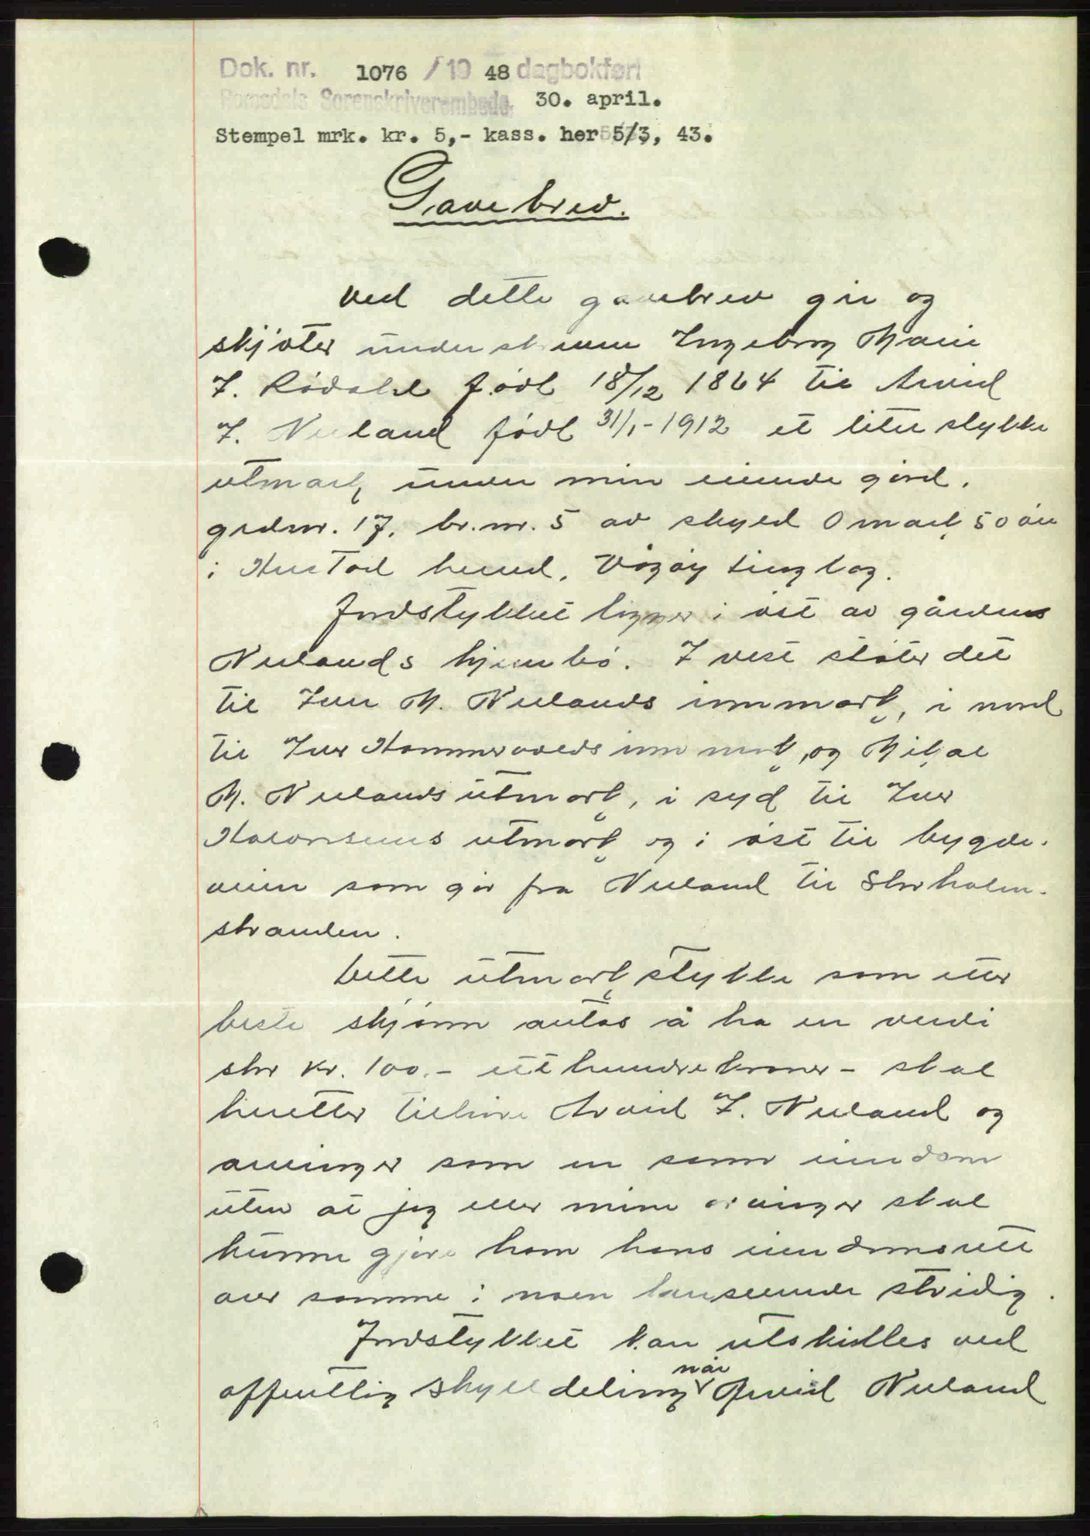 Dok. nr. 1076 / 19 48 dagbokført
Romsdals Sorenskriverembede. 30. april.
Stempel mrk. kr. 5,- kass. her 5/3, 43.
Gavebrev.
Ved dette gavebrev gir og
skjøter underskrevne Ingeborg Marie
J. Rødahl født 18/12 1864 til Arvid
J. Neeland født 31/1-1912 et lite stykke
utmark under min eiende gård.
grdnr. 17, br.nr. 5 av skyld 0 mark 50 øre
i Hustad herred, Vågøy tinglag.
Jordstykket ligger i øst av gårdens
Neelands hjembø. I vest støter det
til Iver M. Neelands innmark, i nord
til Iver Hammervolds innmark, og Mikal
M. Neelands utmark, i syd til Iver
utmark og i øst til bygde-
veien som går fra Neeland til Storholm-
stranden.
Dette utmarkstykke som etter
beste skjønn antas å ha en verdi
stor kr. 100.- etthundrekroner - skal
heretter tilhøre Arvid J. Neeland og
arvinger som en sann eiendom
uten at jeg eller mine arvinger skal
kunne gjøre ham hans eiendomsrett
over samme i noen henseende stridig.
Jordstykket kan utskilles ved
offentlig skylddeling når Arvid Neeland